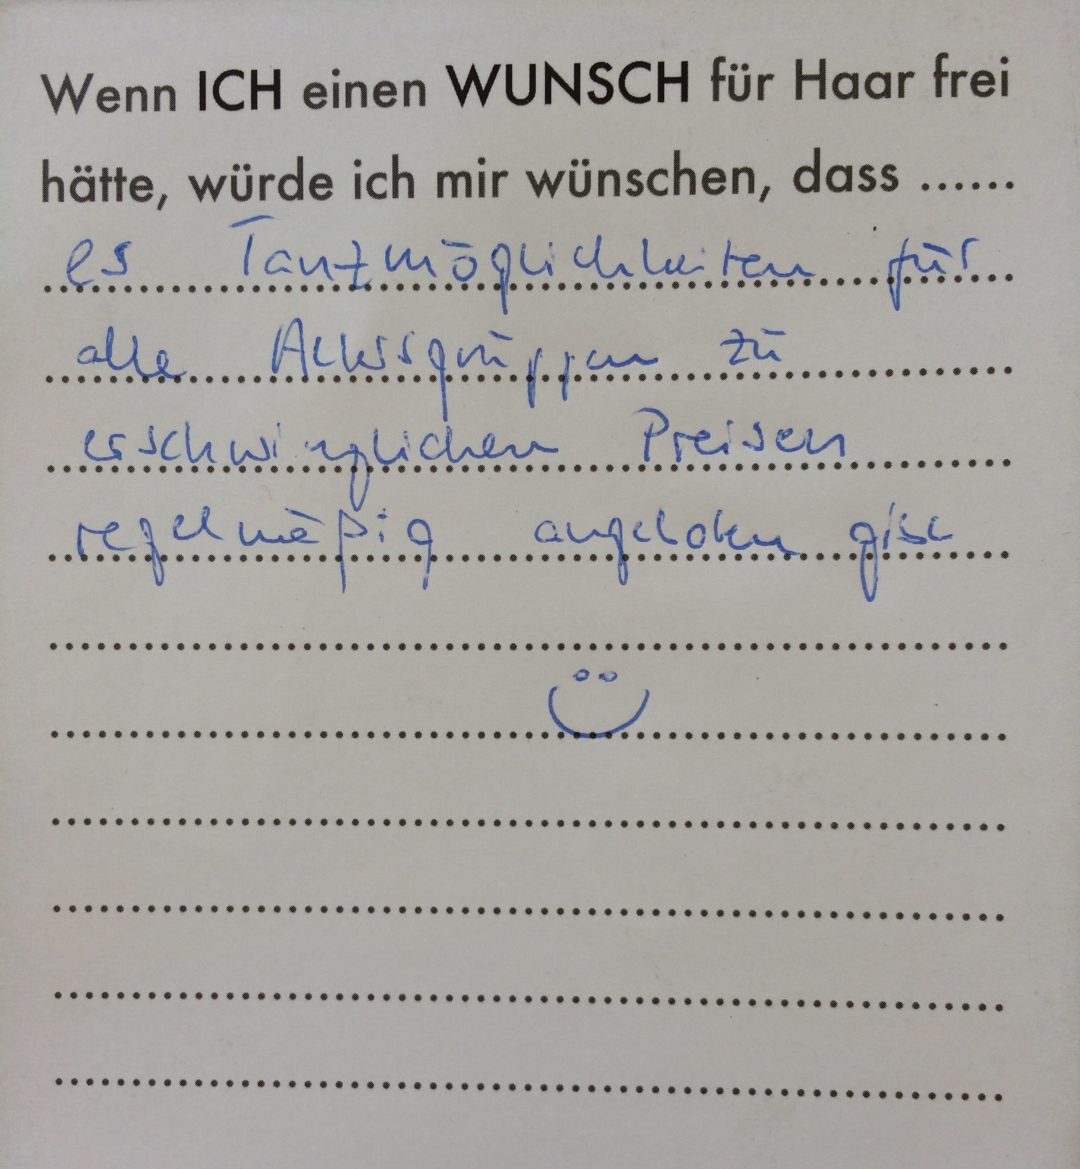 Wenn ICH einen WUNSCH für Haar frei
hätte, würde ich mir wünschen, dass ......
es Tanzmöglichkeiten für
alle Altersgruppen zu
erschwinglichen Preisen
regelmäßig angeboten gibt